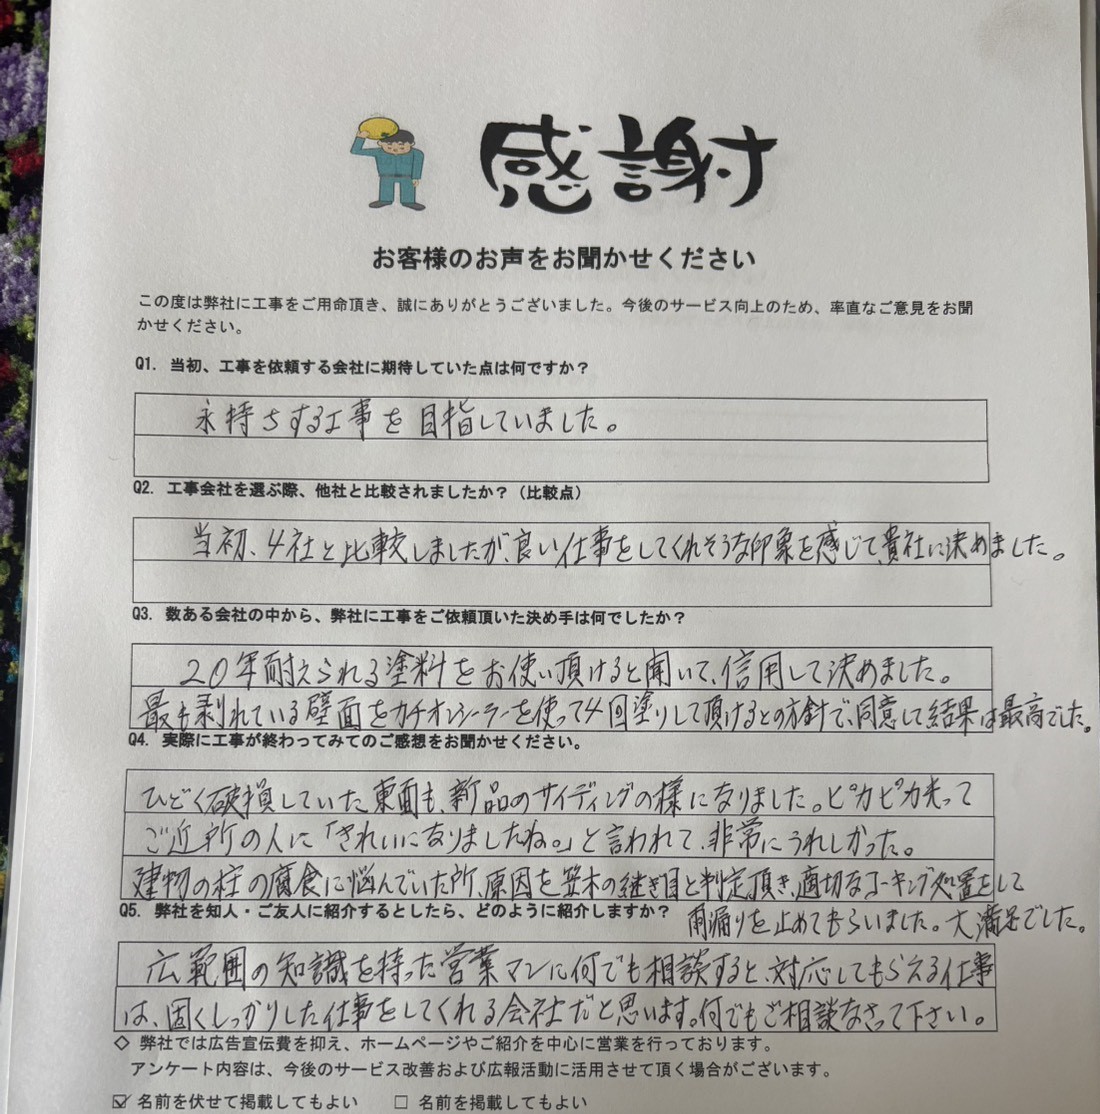 感謝
お客様のお声をお聞かせください
この度は弊社に工事をご用命頂き、誠にありがとうございました。今後のサービス向上のため、率直なご意見をお聞
かせください。
Q1. 当初、工事を依頼する会社に期待していた点は何ですか？
永持ちする工事を目指していました。
Q2. 工事会社を選ぶ際、他社と比較されましたか？（比較点）
当初、4社と比較しましたが、良い仕事をしてくれそうな印象を感じて、貴社に決めました。
Q3. 数ある会社の中から、弊社に工事をご依頼頂いた決め手は何でしたか？
20年耐えられる塗料をお使い頂けると聞いて、信用して決めました。
最も剥れている壁面をカチオンシーラーを使って4回塗りして頂けるとの方針で、同意して結果は最高でした。
Q4. 実際に工事が終わってみてのご感想をお聞かせください。
ひどく破損していた東面も、新品のサイディングの様になりました。ピカピカ光って
ご近所の人に「きれいになりましたね。」と言われて、非常にうれしかった。
建物の柱の腐食に悩んでいた所、原因を笠木の継ぎ目と判定頂き、適切なコーキング処置をして
雨漏りを止めてもらいました。大満足でした。
Q5. 弊社を知人・ご友人に紹介するとしたら、どのように紹介しますか？
広範囲の知識を持った営業マンに何でも相談すると、対応してもらえる仕事
は、固くしっかりした仕事をしてくれる会社だと思います。何でもご相談なさって下さい。
◇ 弊社では広告宣伝費を抑え、ホームページやご紹介を中心に営業を行っております。
アンケート内容は、今後のサービス改善および広報活動に活用させて頂く場合がございます。
☑ 名前を伏せて掲載してもよい □ 名前を掲載してもよい